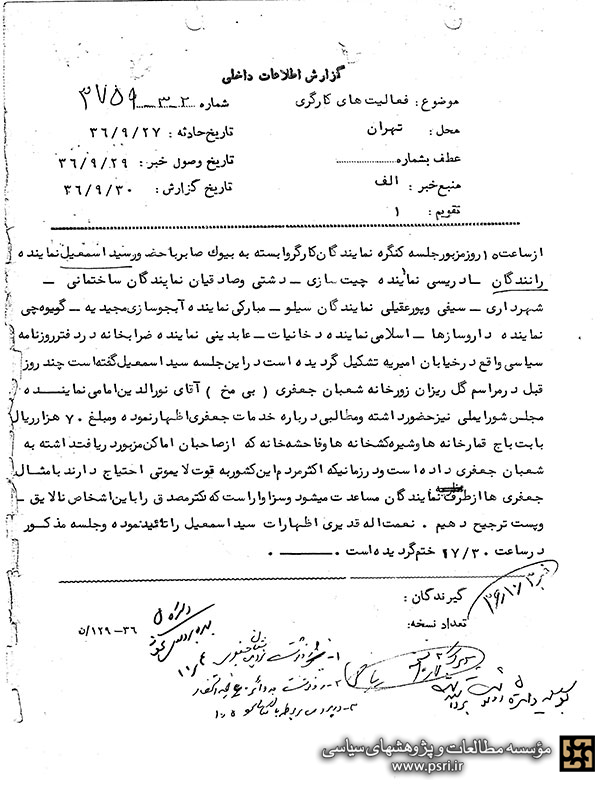 گزارش اطلاعات داخلی
موضوع : فعالیت های کارگری
شماره ۳۲ ۳۷۵۹
محل : تهران
تاریخ حادثه : ۳۶/۹/۲۷
عطف بشماره
تاریخ وصول خبر : ۳۶/۹/۲۹
منبع خبر : الف
تاریخ گزارش : ۳۶/۹/۳۰
تقویم : ۱
از ساعت ۱۵ روز مزبور جلسه کنگره نمایندگان کارگر وابسته به بیوك صابر با حضور سید اسمعیل نماینده
رانندگان ـ ادریسی نماینده چیت سازی ـ دشتی وصادقیان نمایندگان ساختمانی ـ
شهرداری ـ سیفی وپورعقیلی نمایندگان سیلو ـ مبارکی نماینده آبجوسازی مجیدیه ـ گویوه‌چی
نماینده داروسازها ـ اسلامی نماینده دخانیات ـ عابدینی نماینده ضرابخانه دردفتر روزنامه
سیاسی واقع درخیابان امیریه تشکیل گردیده است دراین جلسه سید اسمعیل گفته است چند روز
قبل درمراسم گل ریزان زورخانه شعبان جعفری ( بی مخ ) آقای نورالدین امامی نماینده
مجلس شورایملی نیز حضور داشته ومطالبی درباره خدمات جعفری اظهار نموده ومبلغ ۷۰ هزار ریال
بابت باج قمارخانه ها وشیره کشخانه ها وفاحشه خانه که از صاحبان اماکن مزبور دریافت داشته به
شعبان جعفری داده است ودر زمانیکه اکثر مردم این کشور به قوت لایموتی احتیاج دارند بامثال
جعفری ها ازطرف نمایندگان مجلس مساعدت میشود وسزاوار است که دکتر مصدق را باین اشخاص نالایق ـ
وپست ترجیح دهیم . نعمت اله قدیری اظهارات سید اسمعیل را تائید نموده وجلسه مذکور
درساعت ۱۷/۳۰ ختم گردیده است .
گیرندگان :
تعداد نسخه :
۵/۱۲۹-۳۶
مؤسسه مطالعات و پژوهشهای سیاسی
www.psri.ir